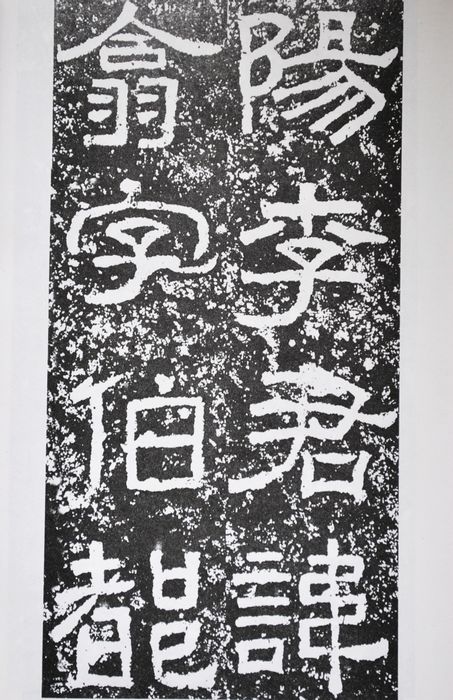 陽李君諱
翕字伯都